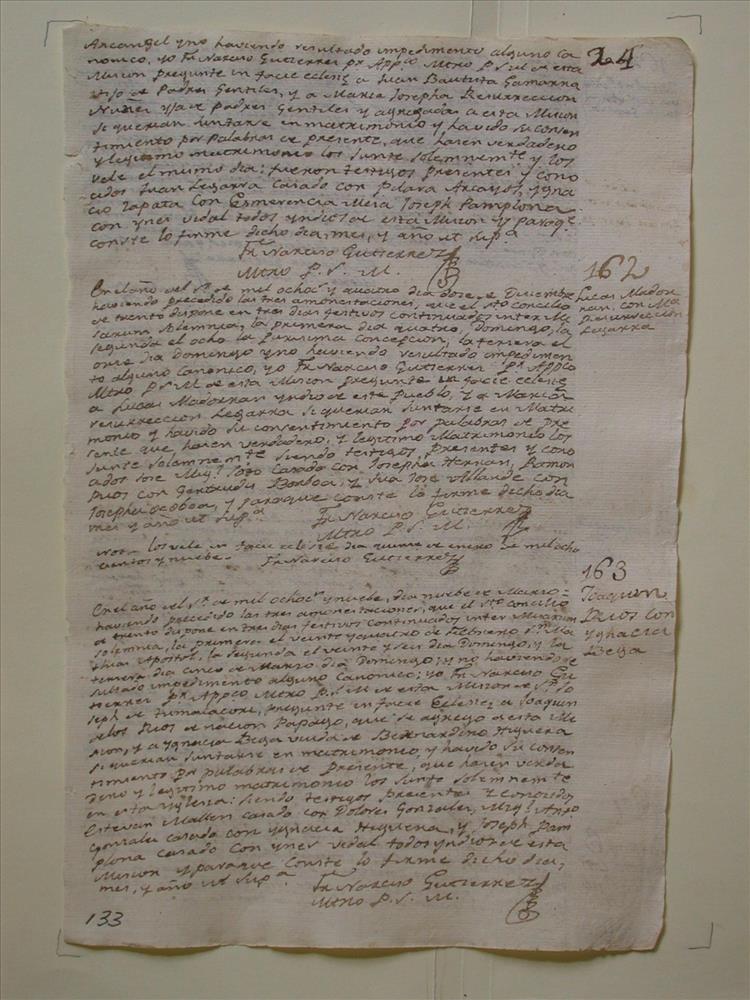 24
Arcangel y no haviendo resultado impedimento alguno ca
nonico, yo Fr. Narciso Gutierres Pr. Appco Mtro P. S. M. de esta
Mision pregunte in facie eclesiæ a Juan Bautista Gamarra
Hijo de Padres Gentiles, y a Maria Josepha Resurreccion
Nuñes y a de Padres Gentiles y agregada a esta Mision
si querian juntarse en matrimonio y havido su consen
timiento por Palabras de presente, que hacen verdadero
y legitimo matrimonio los junte solemnemte y los
vele el mismo dia: fueron testigos presentes y cono
cidos Juan Legarra casado con Pelara Arcayos, Igna
cio Zapata con Esmerencia Mesa Joseph Pamplona
con Ynes Vidal todos yndios de esta Mision y paraqe.
conste lo firme dicho dia, mes, y año ut supa.
Fr. Narciso Gutierrez
Mtro P. S. M.
162
Lucas Mador
nan, con Ma.
Resurreccion
Legarra
En el año del Sr. de mil ochocs. y quatro dia dose de Diciembre
haviendo precedido las tres amonestaciones, que el Sto. Concilio
de trento dispone en tres dias festivos continuados inter Mi
sarum solemnia, la primera dia quatro, Domingo, la
segunda el ocho la Purisima Concepcion, la tersera el
onse dia domingo y no haviendo resultado impedimen
to alguno canonico, yo Fr. Narciso Gutierrez Pr. Appco
Mtro P. S. M. de esta Mision pregunte in facie eclesiæ
a Lucas Madornan yndio de este Pueblo, y a Maria
resurreccion Legarra si querian juntarse en Matri
monio y havido su consentimiento por palabras de pre
sente que, hacen verdadero, y legitimo Matrimonio los
junte solemnemte siendo testigos, presentes y cono
cidos Jose Migl. Soto casado con Josepha Hernan, Ramon
Rios con Gertrudis Borboa, y Jua Jose con
Josepha Ochoa, y paraque conste lo firme dicho dia
mes y año ut suppa.
Fr. Narciso Gutierrez
Mtro P. S. M.
Nota los vele in facie eclesiæ dia de enero de mil ocho
cientos y nuebe. Fr. Narciso Gutierrez
163
Joaquin
Rios con
Yghacia
Bega
En el año del Sr. de mil ochocs. y nuebe, dia nuebe de Marzo
haviendo precedido las tres amonestaciones, que el Sto. Concilio
de trento dispone en tres dias festivos continuados inter Misarum
solemnia, la primera el veinte y quatro de Febrero Sn. Ma
thias Apostol, la segunda el veinte y seis dia Domingo, y la
tersera dia cinco de Marzo dia Domingo, y no haviendo re
sultado impedimento alguno Canonico; yo Fr. Narciso Gu
tierrez Pr. Appco Mtro P. S. M. de esta Mision de Sn. Jo
seph de tumacacori, pregunte in facie Eclesiæ a Joaquin
de los Rios de nacion Papago, que se agrego a esta Mi
sion, y a Ygnacia Bega viuda de Bernardino Higuera
si querian juntarse en matrimonio, y havido su consen
timiento por palabras de Presente, que hacen verda
dero y legitimo matrimonio los junte solemnemte
en esta yglesia: siendo testigos presentes y conosidos
Estevan Mallen casado con Dolores Gonzales, Migl. Anto
Gonzales casado con Ygnacia Higuera, y Joseph Pam
plona casado con Ynes Vidal todos yndios de esta
Mision y paraque conste lo firme dicho dia,
mes, y año ut supa.
Fr. Narciso Gutierrez
Mtro P. S. M.
133